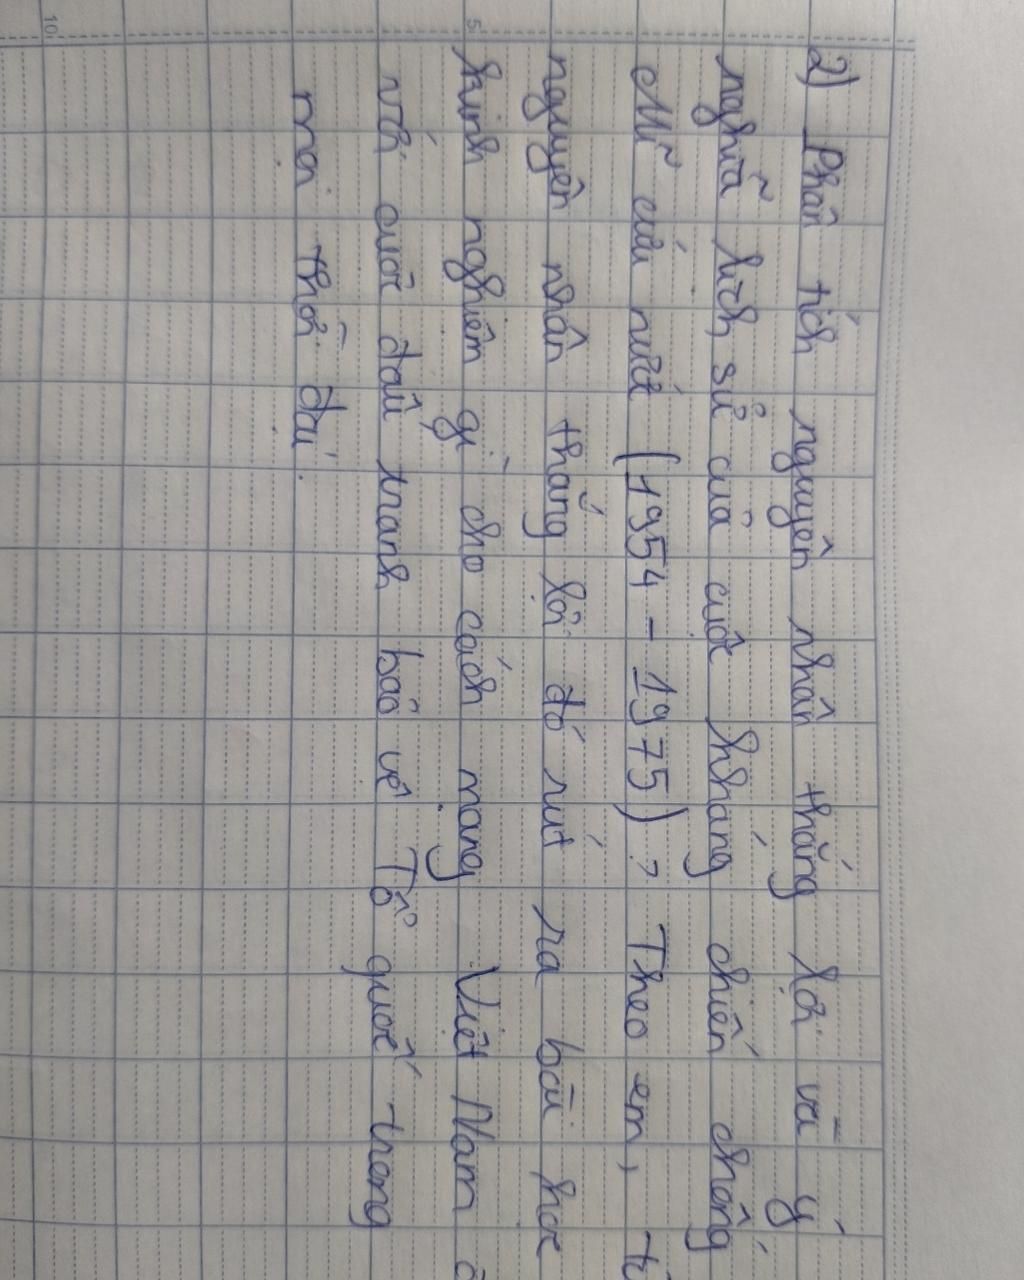 2) Phân tích nguyên nhân thắng lợi và ý
nghĩa lịch sử của cuộc kháng chiến chống
Mĩ cứu nước (1954 - 1975)? Theo em, từ
nguyên nhân thắng lợi đó rút ra bài học
kinh nghiệm gì cho cách mạng Việt Nam
với cuộc đấu tranh bảo vệ Tổ quốc trong
mọi thời đại.
5
10